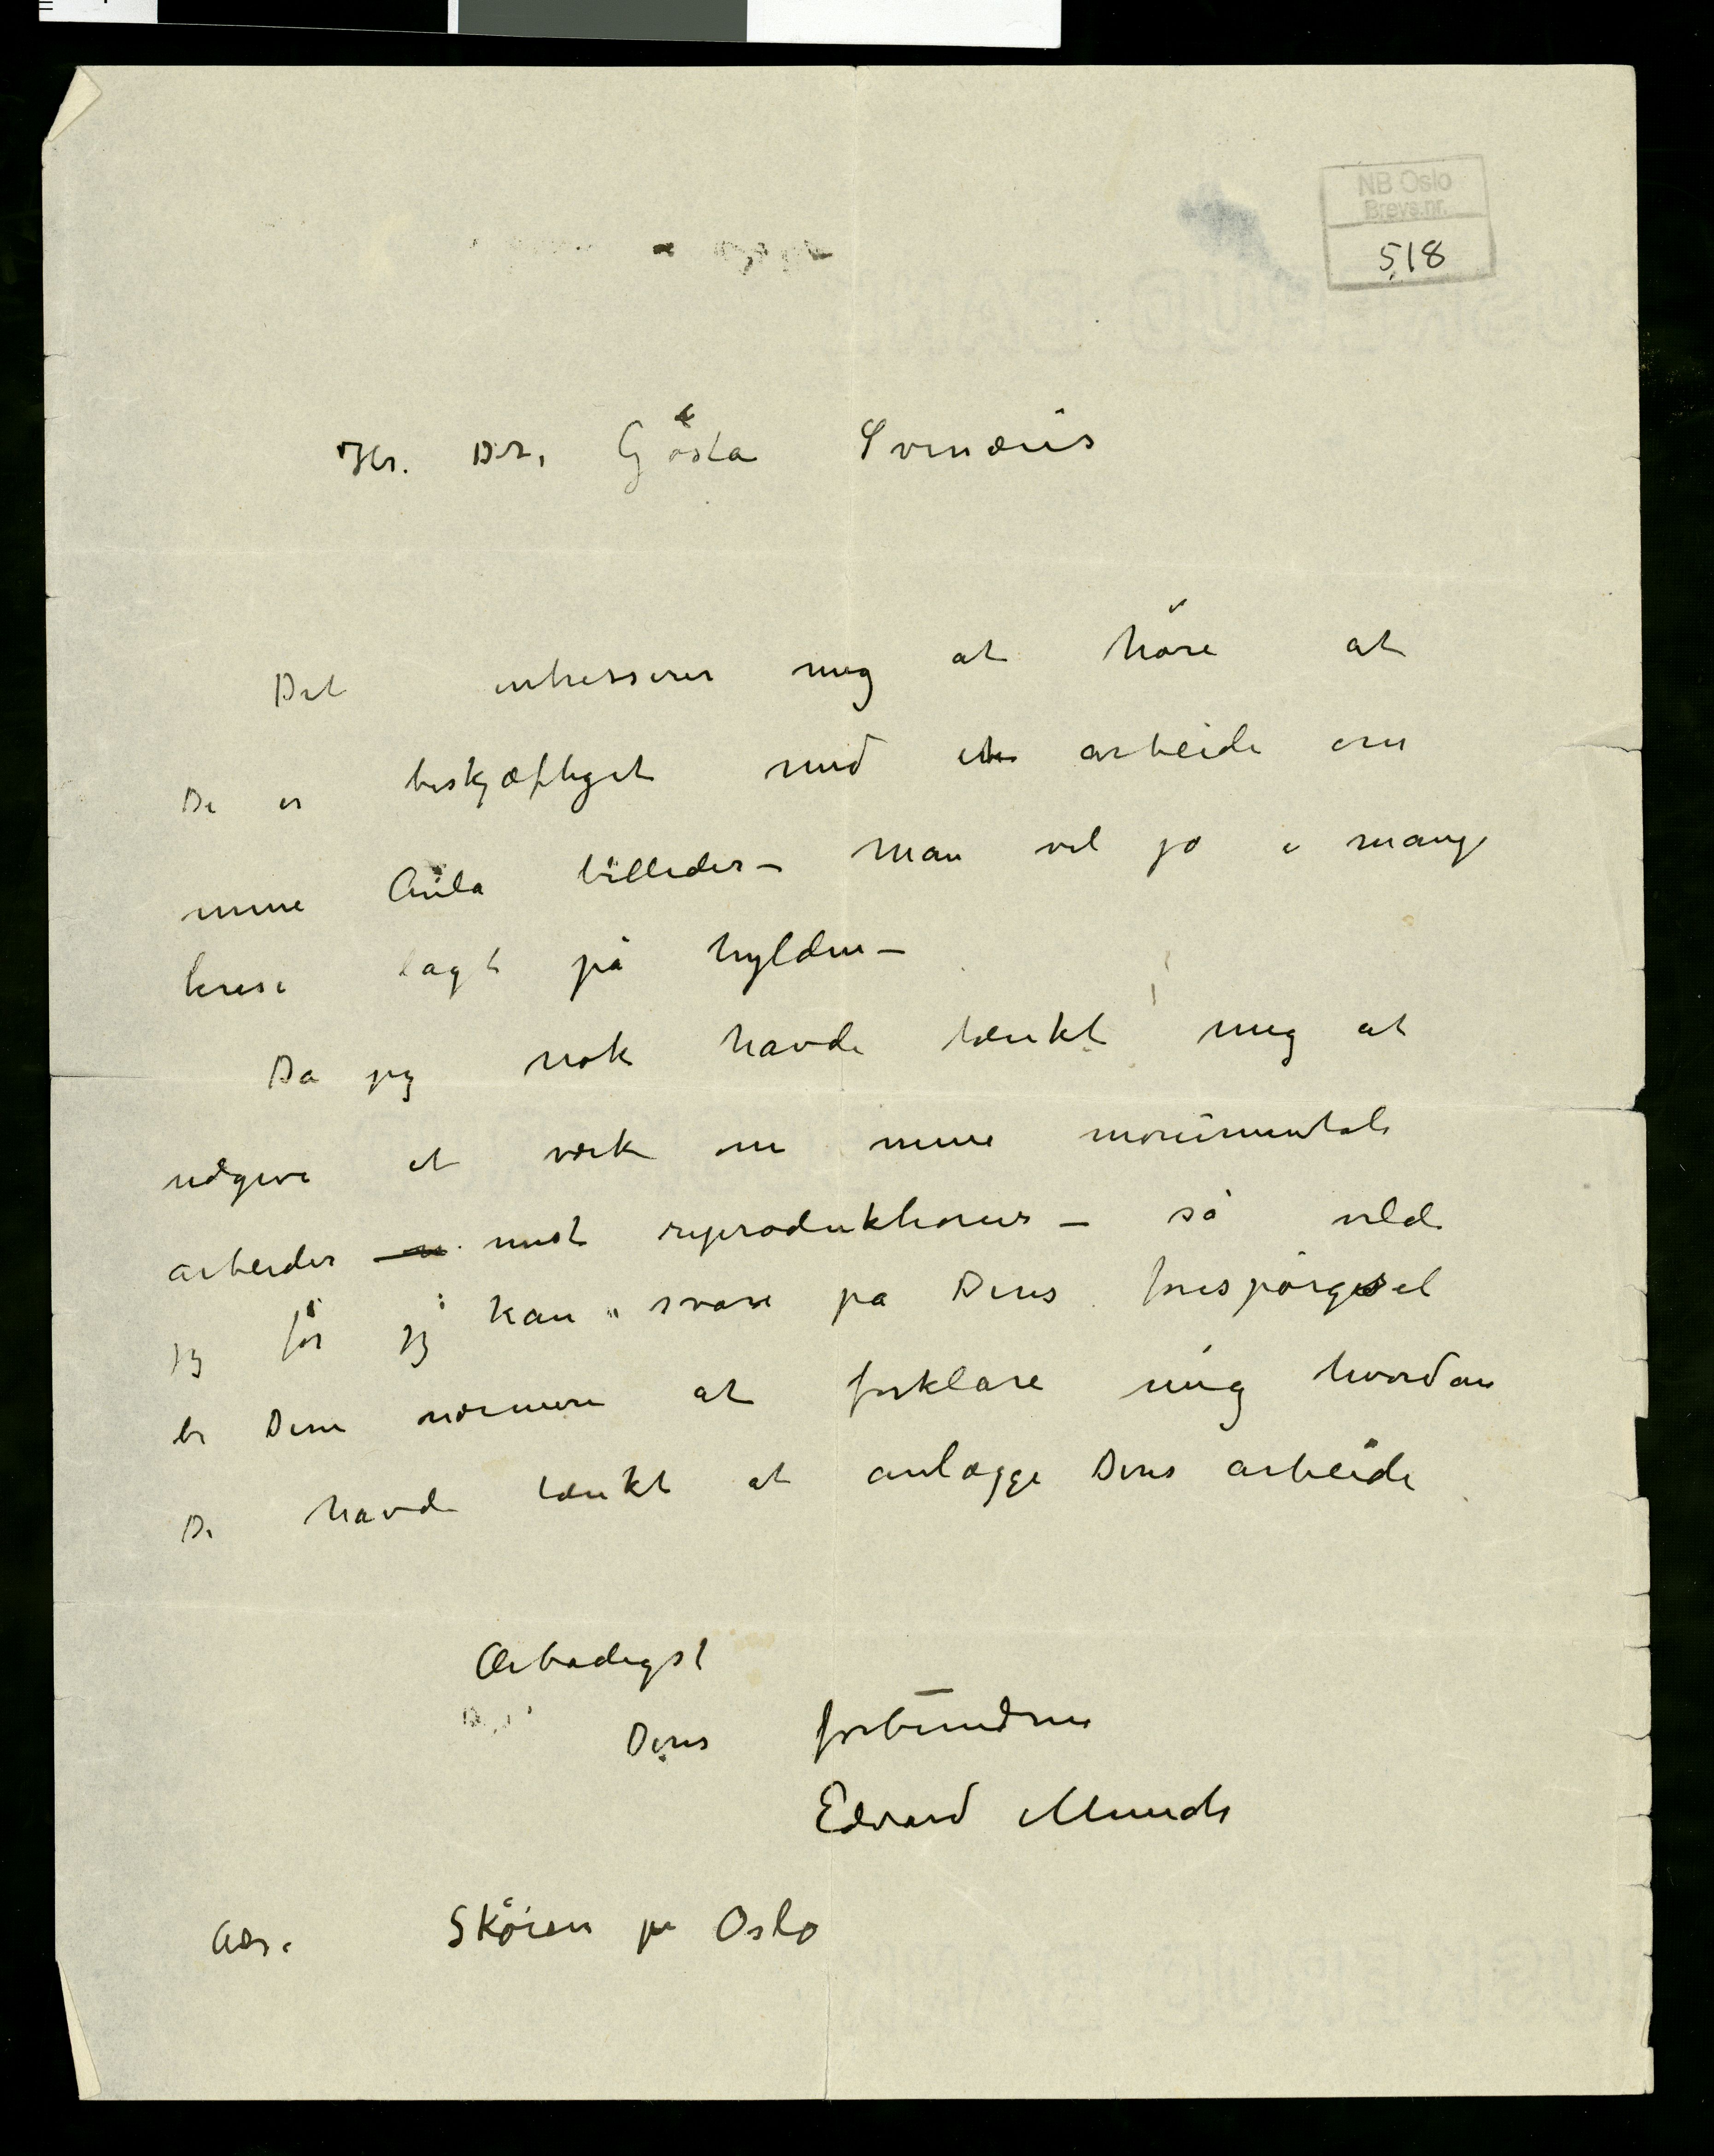 NB Oslo
Brevs.nr.
518
Hr. Dr. Gösta Svenæus
Det intresserer mig at höre at
De er beskjæftiget med et arbeide om
mine Aula billeder – Man vil jo i mange
krese lagt på hylden –
Da jeg nok havde tænkt mig at
udgive et værk om mine monumentale
arbeider med reproduktioner – så vilde
jeg för jeg kan svare på Deres forespörgsel
be Dem nærmere at forklare mig hvordan
De havde tænkt at anlægge Deres arbeide
Ærbødigst
Deres forbundne
Edvard Munch
Adr. Sköien pr Oslo